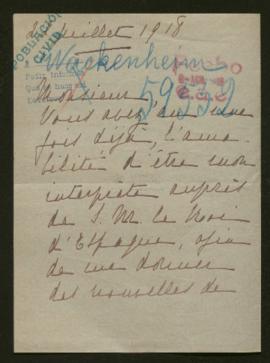 Juillet 1918
POBLACIÓN
CIVIL
Wackenheim
59332
Monsieur
Vous avez eu une
fois déjà, l'ama-
bilité d'être mon
interprète auprès
de S. M. le Roi
d'Espagne, afin
de me donner
des nouvelles de